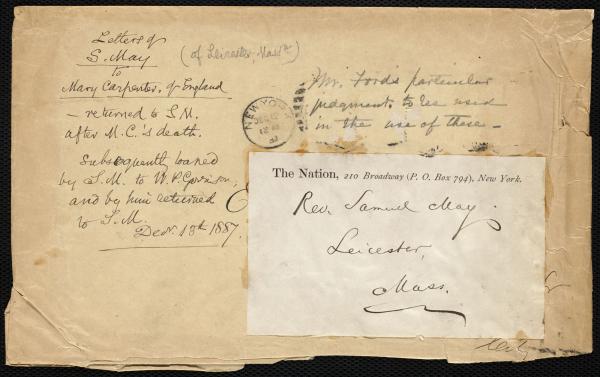 Letters of
S. May
to
Mary Carpenter, of England
— returned to S.M.
after M.C.'s death.
Subsequently loaned
by S.M. to W.P. Garrison,
and by him returned
to S.M.
Decr. 13th 1887.
(of Leicester, Masstt)
NEW YORK
Mr. Ford's particular
judgment to be used
in the use of these —
The Nation, 210 Broadway (P. O. Box 794), New York.
Rev. Samuel May
Leicester,
Mass.